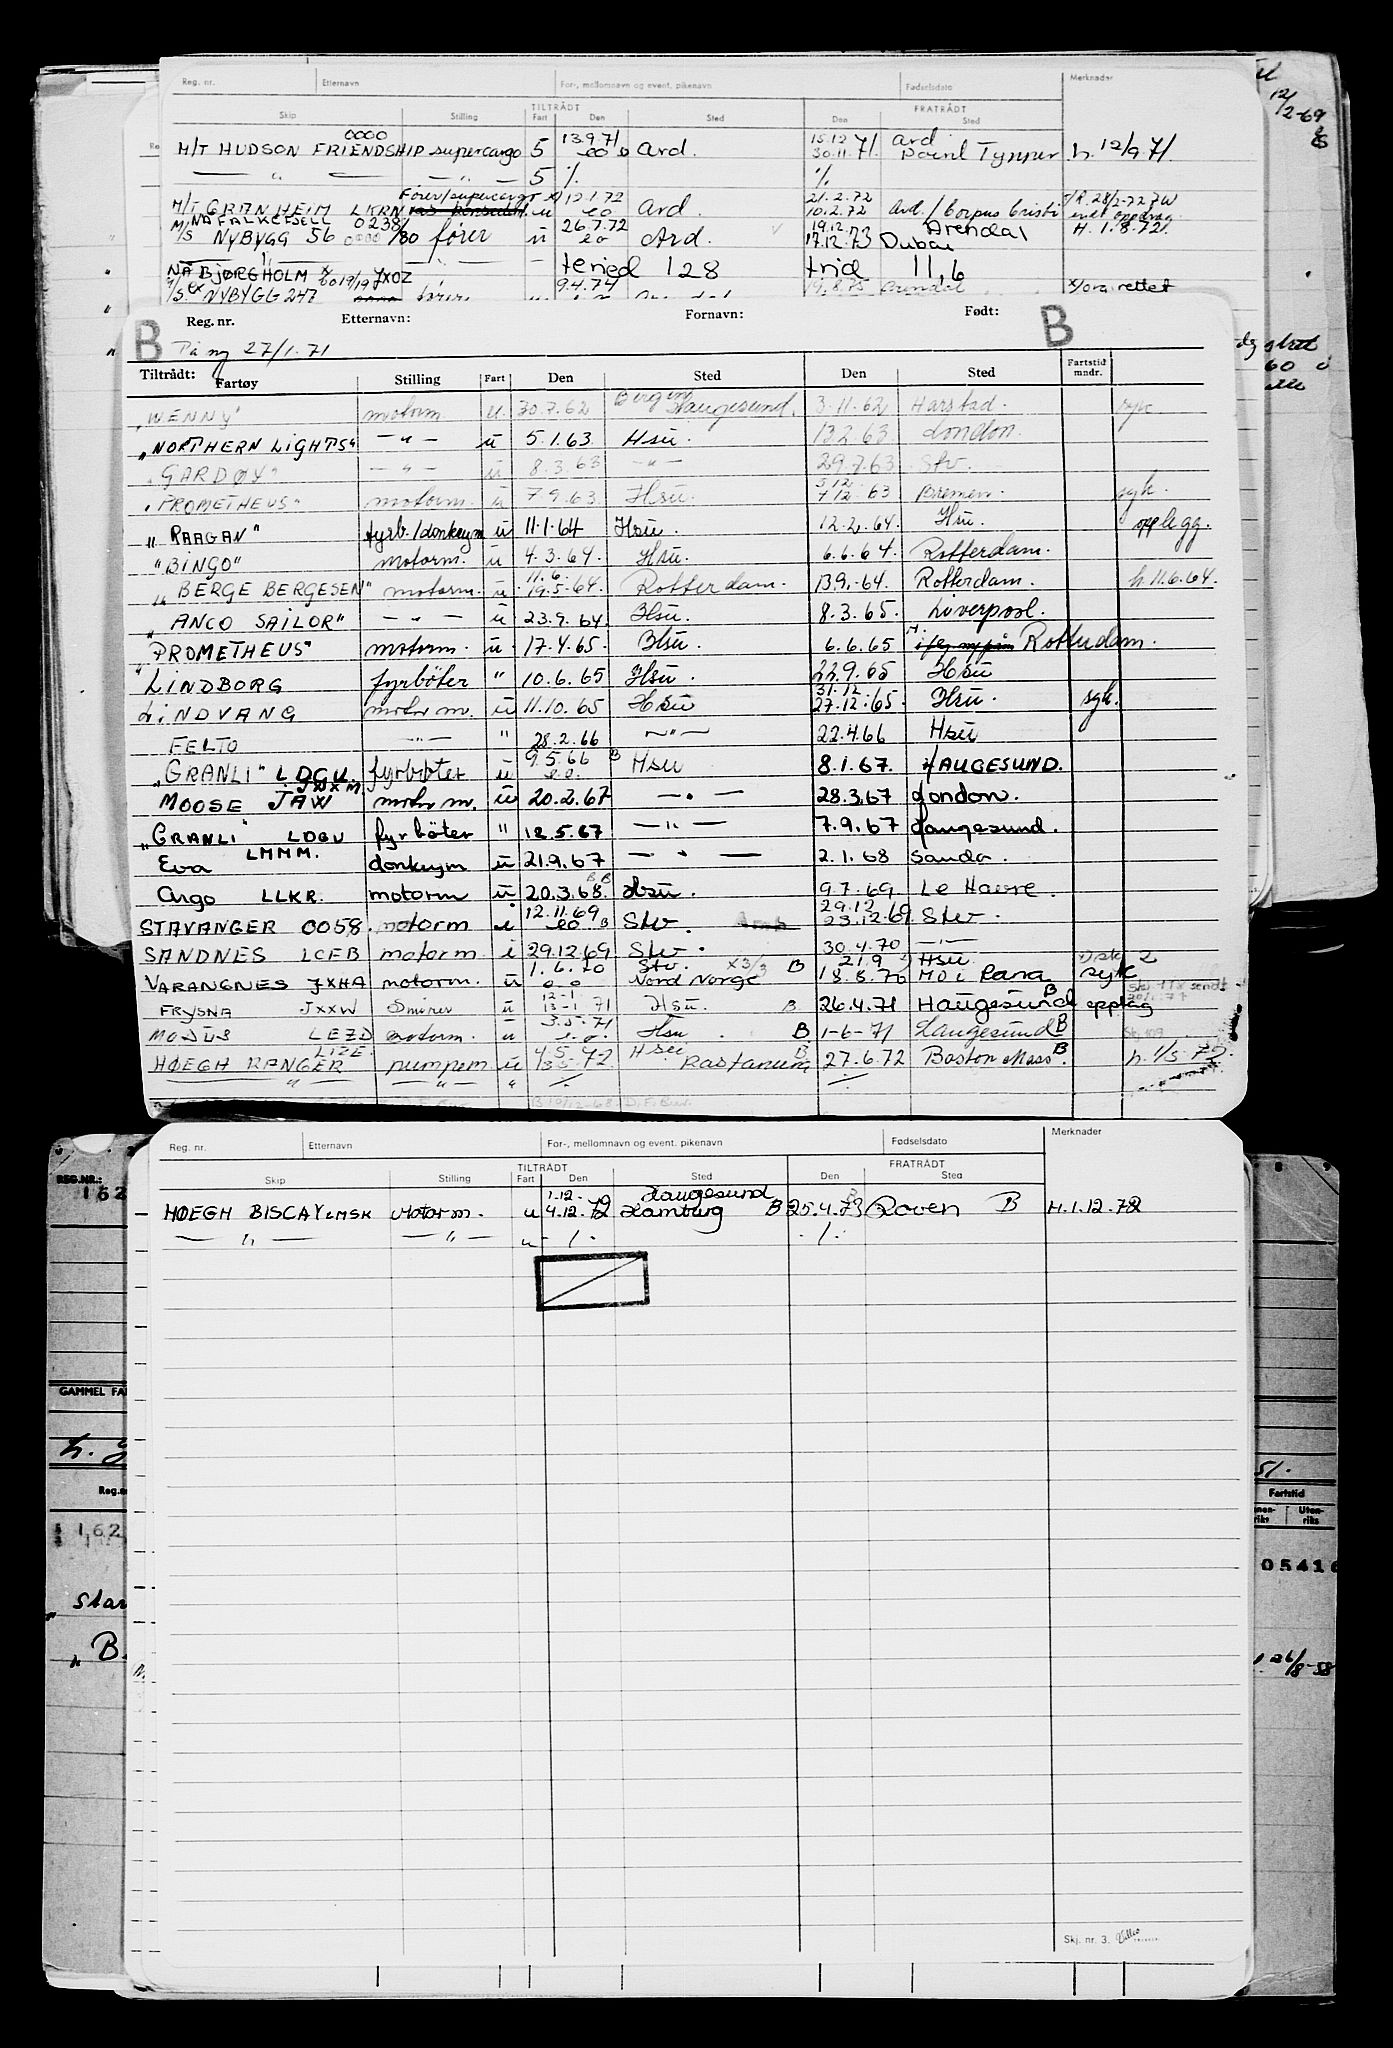 Reg. nr. Etternavn For-, mellomnavn og event. pikenavn Fødselsdato Merknader
TILTRÅDT FRATRÅDT
Skip Stilling Fart Den Sted Den Sted
0000 13.9.71 15.12 71. Ard
M/T HUDSON FRIENDSHIP supercargo 5 eo Ard. 30.11. h. 12/9.71.
— " — — " — 5 ·/. ·/.
Fører/supercargo 12.1.72 21.2.72
M/T GRANHEIM LKRN u eo Ard. 10.2.72 Ard. / Corpus Cristi
NÅ FALKEFJELL 0238 26.7.72 19.12.73 Arendal H. 1.8.72.
M/S NYBYGG 56 0000 /80 fører u eo Ard. 17.12.73 Dubai
— " — teried 128 trid 11,6
NÅ BJØRGHOLM JXOZ 9.4.74 19.8.75 Arendal rettet
M/S NYBYGG 247
B Reg. nr. Etternavn: Fornavn: Født: B
På ny 27/1.71
Tiltrådt: Fartøy Stilling Fart Den Sted Den Sted Fartstid mndr.
"WENNY" motorm u. 30.7.62 Bergen Haugesund. 3.11.62 Harstad. syk
"NORTHERN LIGHTS" — " — u 5.1.63. Hsu. 13.2.63. London.
"GARDØY" — " — u 8.3.63 — " — 29.7.63 Stv.
"PROMETHEUS" motorm. u 7.9.63. Hsu. 5.12 7.12.63 Bremen. syk.
"RAAGAN" fyrb./donkeym u 11.1.64 Hsu. 12.2.64. Hsu. opplegg.
"BINGO" motorm. u 4.3.64. Hsu. 6.6.64. Rotterdam.
"BERGE BERGESEN" motorm. u 11.6. 19.5.64. Rotterdam. 13.9.64. Rotterdam. h. 11.6.64.
"ANCO SAILOR" — " — u 23.9.64. Hsu. 8.3.65. Liverpool.
"PROMETHEUS" motorm. u 17.4.65. Hsu. 6.6.65 Rotterdam.
"LINDBORG fyrbøter " 10.6.65 Hsu. 22.9.65 Hsu
LINDVANG motorm. u 11.10.65 Hsu 31.12. 27.12.65. Hsu. syk.
FELTO — " — " 28.2.66 — " — 22.4.66 Hsu
"GRANLI" LDGU. fyrbøter u 9.5.66 e.o. B Hsu 8.1.67. HAUGESUND.
MOOSE JAW JWXM motorm. u 20.2.67 — " — 28.3.67 London.
"GRANLI" LDGU fyrbøter " 12.5.67 — " — 7.9.67 Haugesund.
Eva LMMM. donkeym u 21.9.67 — " — 2.1.68 Sauda.
Argo LLKR. motorm u 20.3.68. Hsu. 9.7.69. Le Havre.
STAVANGER 0058. motorm i 12.11.69 eo B Stv. 29.12 23.12.69. Stv.
SANDNES LCEB motorm i 29.12.69 Stv. 30.4.70 — " —
VARANGNES JXHA motorm. u 1.6.70 e.o. Stv. Nord Norge X3/3 B 21.9 18.8.70 Hsu. MO i Rana syk
FRYSNA JXXW Smører u 12-1 13-1-71 Hsu. B 26.4.71 Haugesund B opplag
MODUS LEZD motorm. u 3.5.71 e.o. Hsu. B 1-6-71 Haugesund B
HØEGH RANGER LIZE pumpem u 4.5.72 13.5.72. Hsu Rastanura B 27.6.72 Boston Mass. B h. 1/5-72.
— " — — " — " ·/. ·/.
Reg. nr. Etternavn For-, mellomnavn og event. pikenavn Fødselsdato Merknader
TILTRÅDT FRATRÅDT
Skip Stilling Fart Den Sted Den Sted
1.12.72 Haugesund
HØEGH BISCAY LMSK Motorm. u 4.12.72 Hamburg B 25.4.73 Rouen B H. 1.12.72
— " — — " — u ·/. ·/.
REG.NR.:
162
GAMMEL FA
h.
Reg.n
162
Star
B.
12/2-69
51.
Fartstid
Uten-riks
05416
26/8-58
Skj. nr. 3.